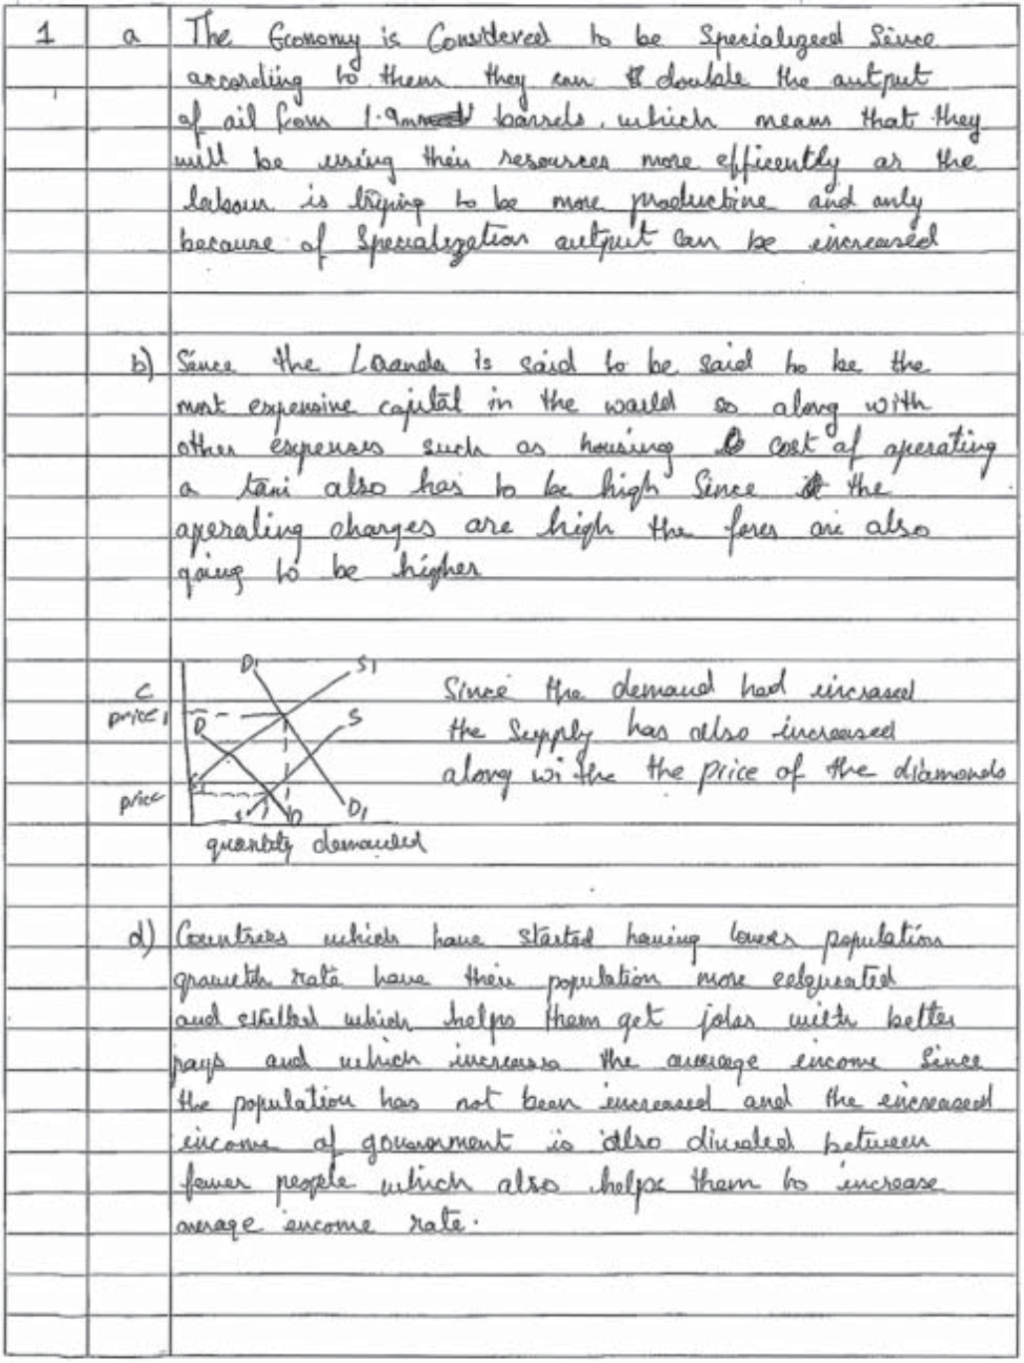 1 a The Economy is Considered to be Specialized Since
according to them they can double the output
of oil from 1.9m barrels. which means that they
will be using their resources more efficently as the
labour is trying to be more productive and only
because of Specialization output can be increased
b) Since the Luanda is said to be said to be the
most expensive capital in the world so along with
other expenses such as housing cost of operating
a taxi also has to be high Since the
operating charges are high the fares are also
going to be higher
c
D1 S1
price1 D S
S1
price S D D1
quantity demanded
Since the demand had incrased
the Supply has also increased
along withe the price of the diamonds
d) Countries which have started having lowers population
growth rate have their population more
and skilled which helps them get jobs with better
pays and which increases the average encome Since
the population has not been increased and the encreased
encome of government is also divided between
fewer people which also helps them to increase
average encome rate.